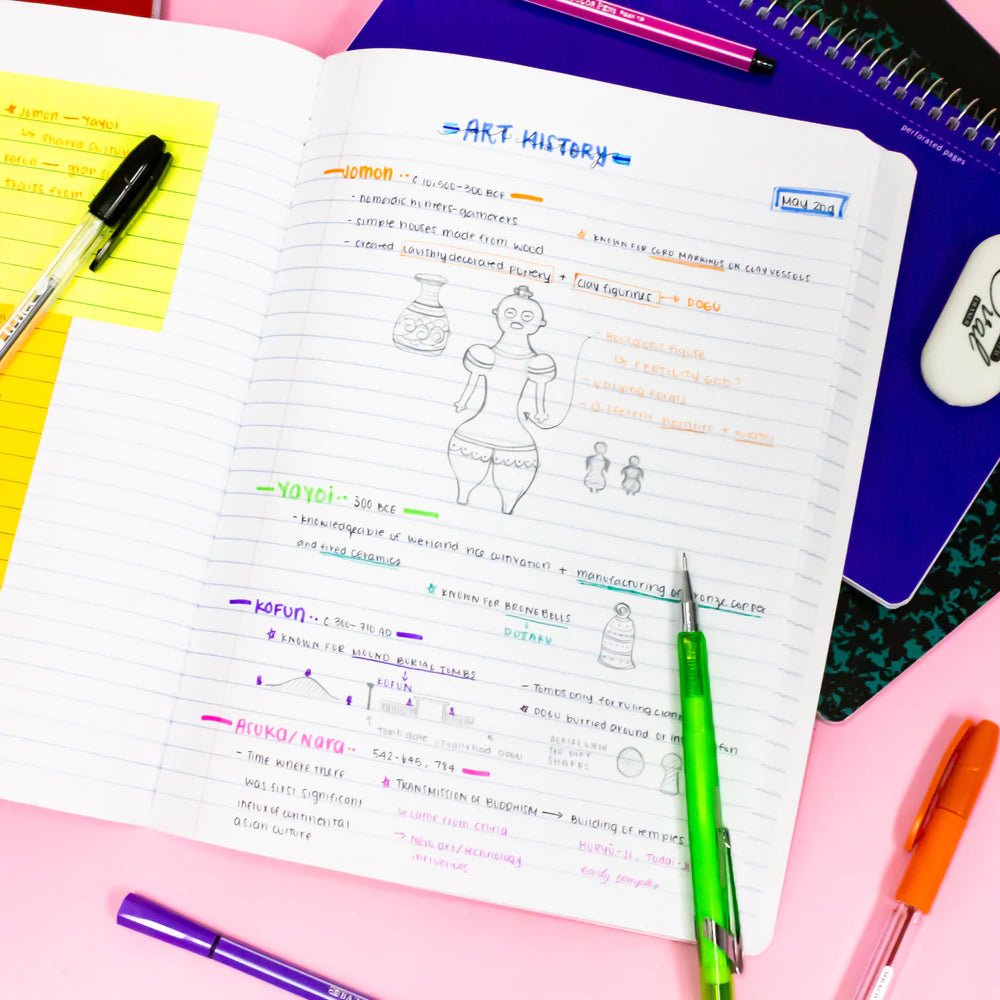 Jomon — Yayoi
↳ shared
Kofun —
traits from
- ART HISTORY -
May 2nd
- Jomon ·· c 10,500-300 BCE
- nomadic hunters-gatherers
- simple houses made from wood
- created lavishly decorated pottery + clay figurines → DOGU
* KNOWN FOR CORD MARKINGS ON CLAY VESSELS
- hourglass figure
↳ FERTILITY GOD?
- varying forms
- different heights + widths
- Yayoi ·· 300 BCE
- knowledgeable of wetland rice cultivation + manufacturing of bronze, copper
and fired ceramics
* KNOWN FOR BRONE BELLS
↓
DOTAKU
- KOFUN ·· c 300-710 AD
* KNOWN FOR MOUND BURIAL TOMBS
↓
KOFUN
- Tombs only for ruling
* DOGU burried around or
Tomb gate
AERIAL VIEW
SHAPES
- Asuka/Nara ·· 542-645, 784
- Time where there
was first significant
influx of continental
asian culture
* TRANSMISSION OF BUDDHISM → Building of temples
↳ came from China
→ New art/technology
influences
HORYŪ-JI, Todai-Ji
early
perforated pages